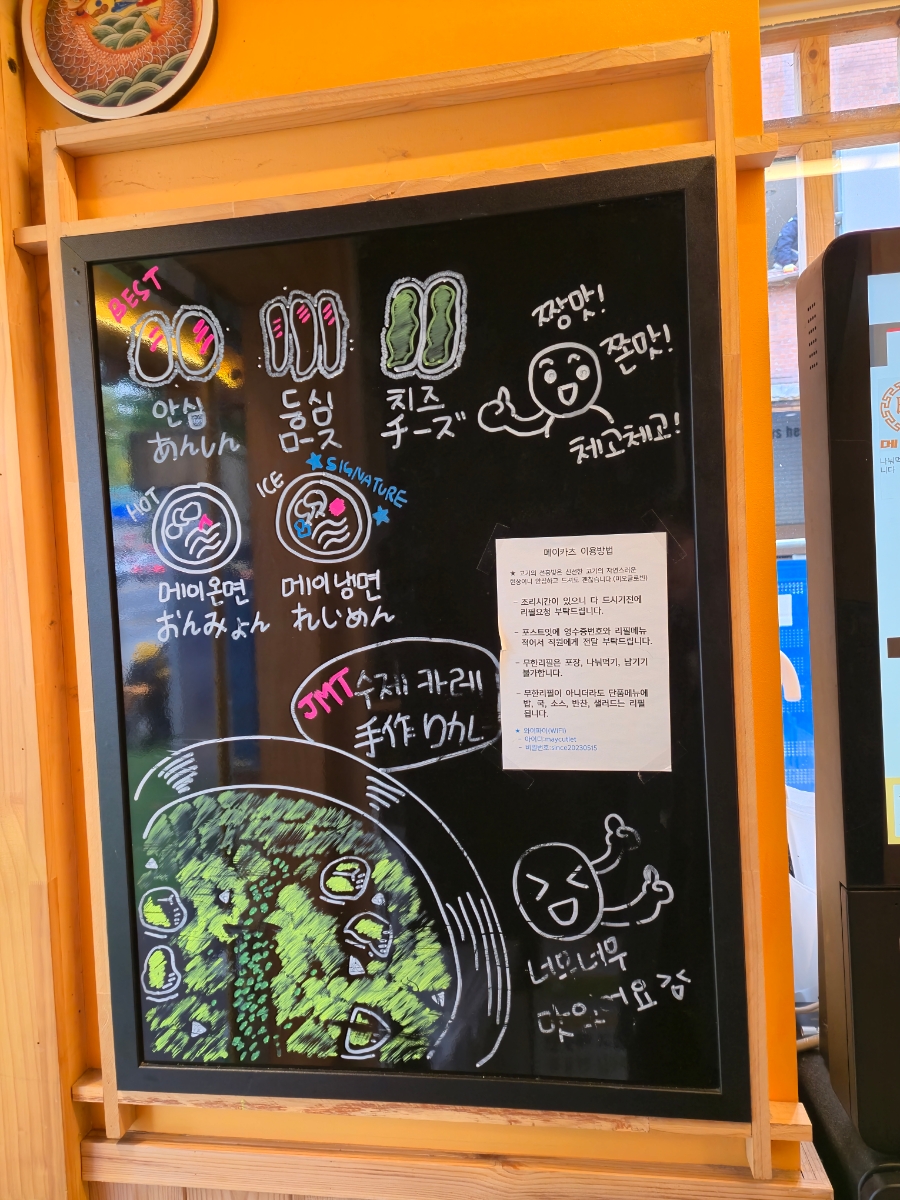 BEST
안심
あんしん
등심
ロース
치즈
チーズ
짱맛!
쫀맛!
체고체고!
HOT
메이온면
おんみょん
ICE
SIGNATURE
메이냉면
れいめん
JMT 수제 카레
手作りカレ
메이카츠 이용방법
★ 고기의 선홍빛은 신선한 고기의 자연스러운
현상이니 안심하고 드셔도 괜찮습니다 (미오글로빈)
- 조리시간이 있으니 다 드시기전에
리필요청 부탁드립니다.
- 포스트잇에 영수증번호와 리필메뉴
적어서 직원에게 전달 부탁드립니다.
- 무한리필은 포장, 나눠먹기, 남기기
불가합니다.
- 무한리필이 아니더라도 단품메뉴에
밥, 국, 소스, 반찬, 샐러드는 리필
됩니다.
★ 와이파이(WIFI)
- 아이디:maycutlet
- 비밀번호:since20230515
너무너무
맛있어요